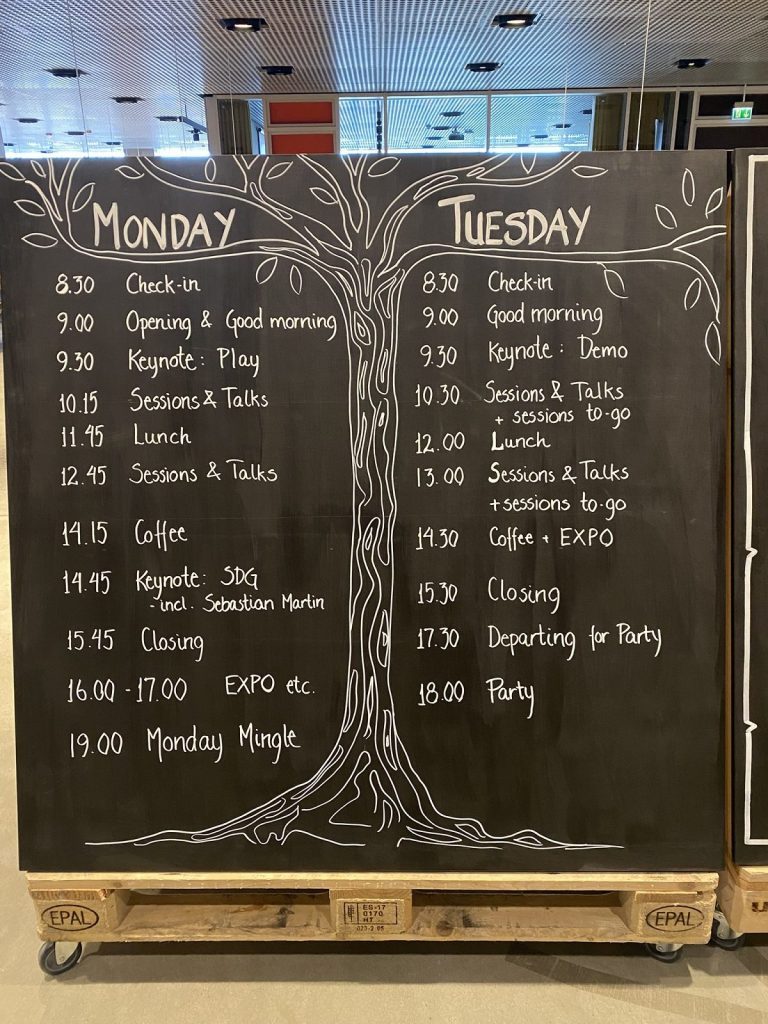 MONDAY
8.30 Check-in
9.00 Opening & Good morning
9.30 Keynote: Play
10.15 Sessions & Talks
11.45 Lunch
12.45 Sessions & Talks
14.15 Coffee
14.45 Keynote: SDG
- incl. Sebastian Martin
15.45 Closing
16.00 - 17.00 EXPO etc.
19.00 Monday Mingle
TUESDAY
8.30 Check-in
9.00 Good morning
9.30 Keynote: Demo
10.30 Sessions & Talks
+ sessions to-go
12.00 Lunch
13.00 Sessions & Talks
+ sessions to-go
14.30 Coffee + EXPO
15.30 Closing
17.30 Departing for Party
18.00 Party
EPAL
ES-17
0170
HT
EPAL